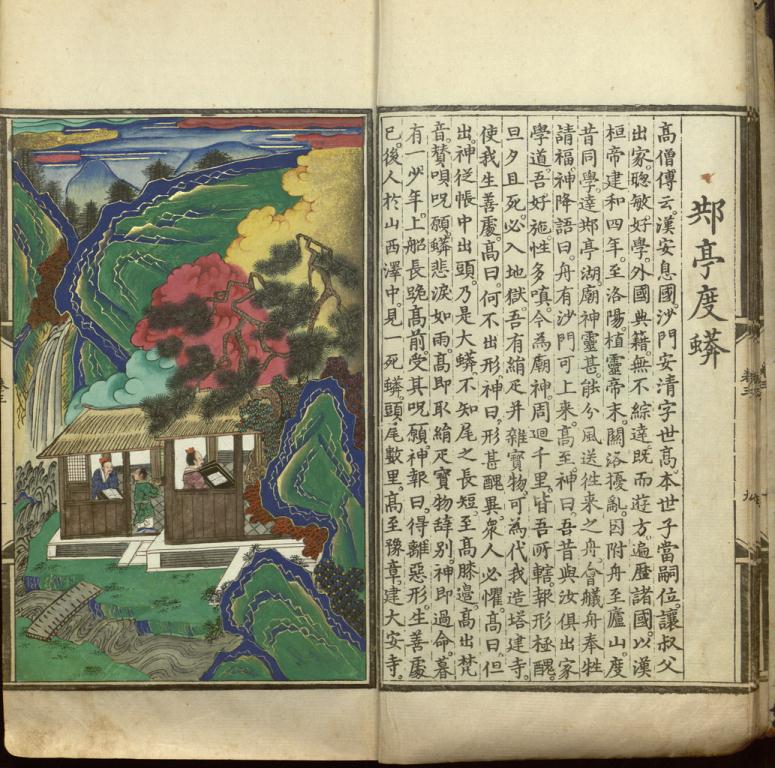 䢼亭度蟒
高僧傳云。漢安息國。沙門安清字世高。本世子當嗣位。讓叔父
出家。聡敏好學。外國典籍。無不綜達。既而遊方。遍歷諸國。以漢
桓帝建和四年。至洛陽。植靈帝末。關洛擾亂。因附舟至廬山。度
昔同學。達䢼亭湖。廟神靈甚。能分風送往來之舟。會艤舟奉牲
請福。神降語曰。舟有沙門可上來。高至神曰。吾昔與汝俱出家
學道。吾好施。性多嗔。今為廟神。周迴千里。皆吾所轄。報形極醜。
旦夕且死。必入地獄。吾有絹疋并雜寶物。可為代我造塔建寺。
使我生善處。高曰。何不出形。神曰。形甚醜異。衆人必懼。高曰。但
出。神從帳中出頭。乃是大蟒。不知尾之長短。至高膝邊。高出梵
音。贊唄呪願。蟒悲淚如雨。高即取絹疋寶物。辭別。神即過命。暮
有一少年。上船長跪高前。受其呪願。神報曰。得離惡形。生善處
已。後人於山西澤中。見一死蟒。頭尾數里。高至豫章。建大安寺。